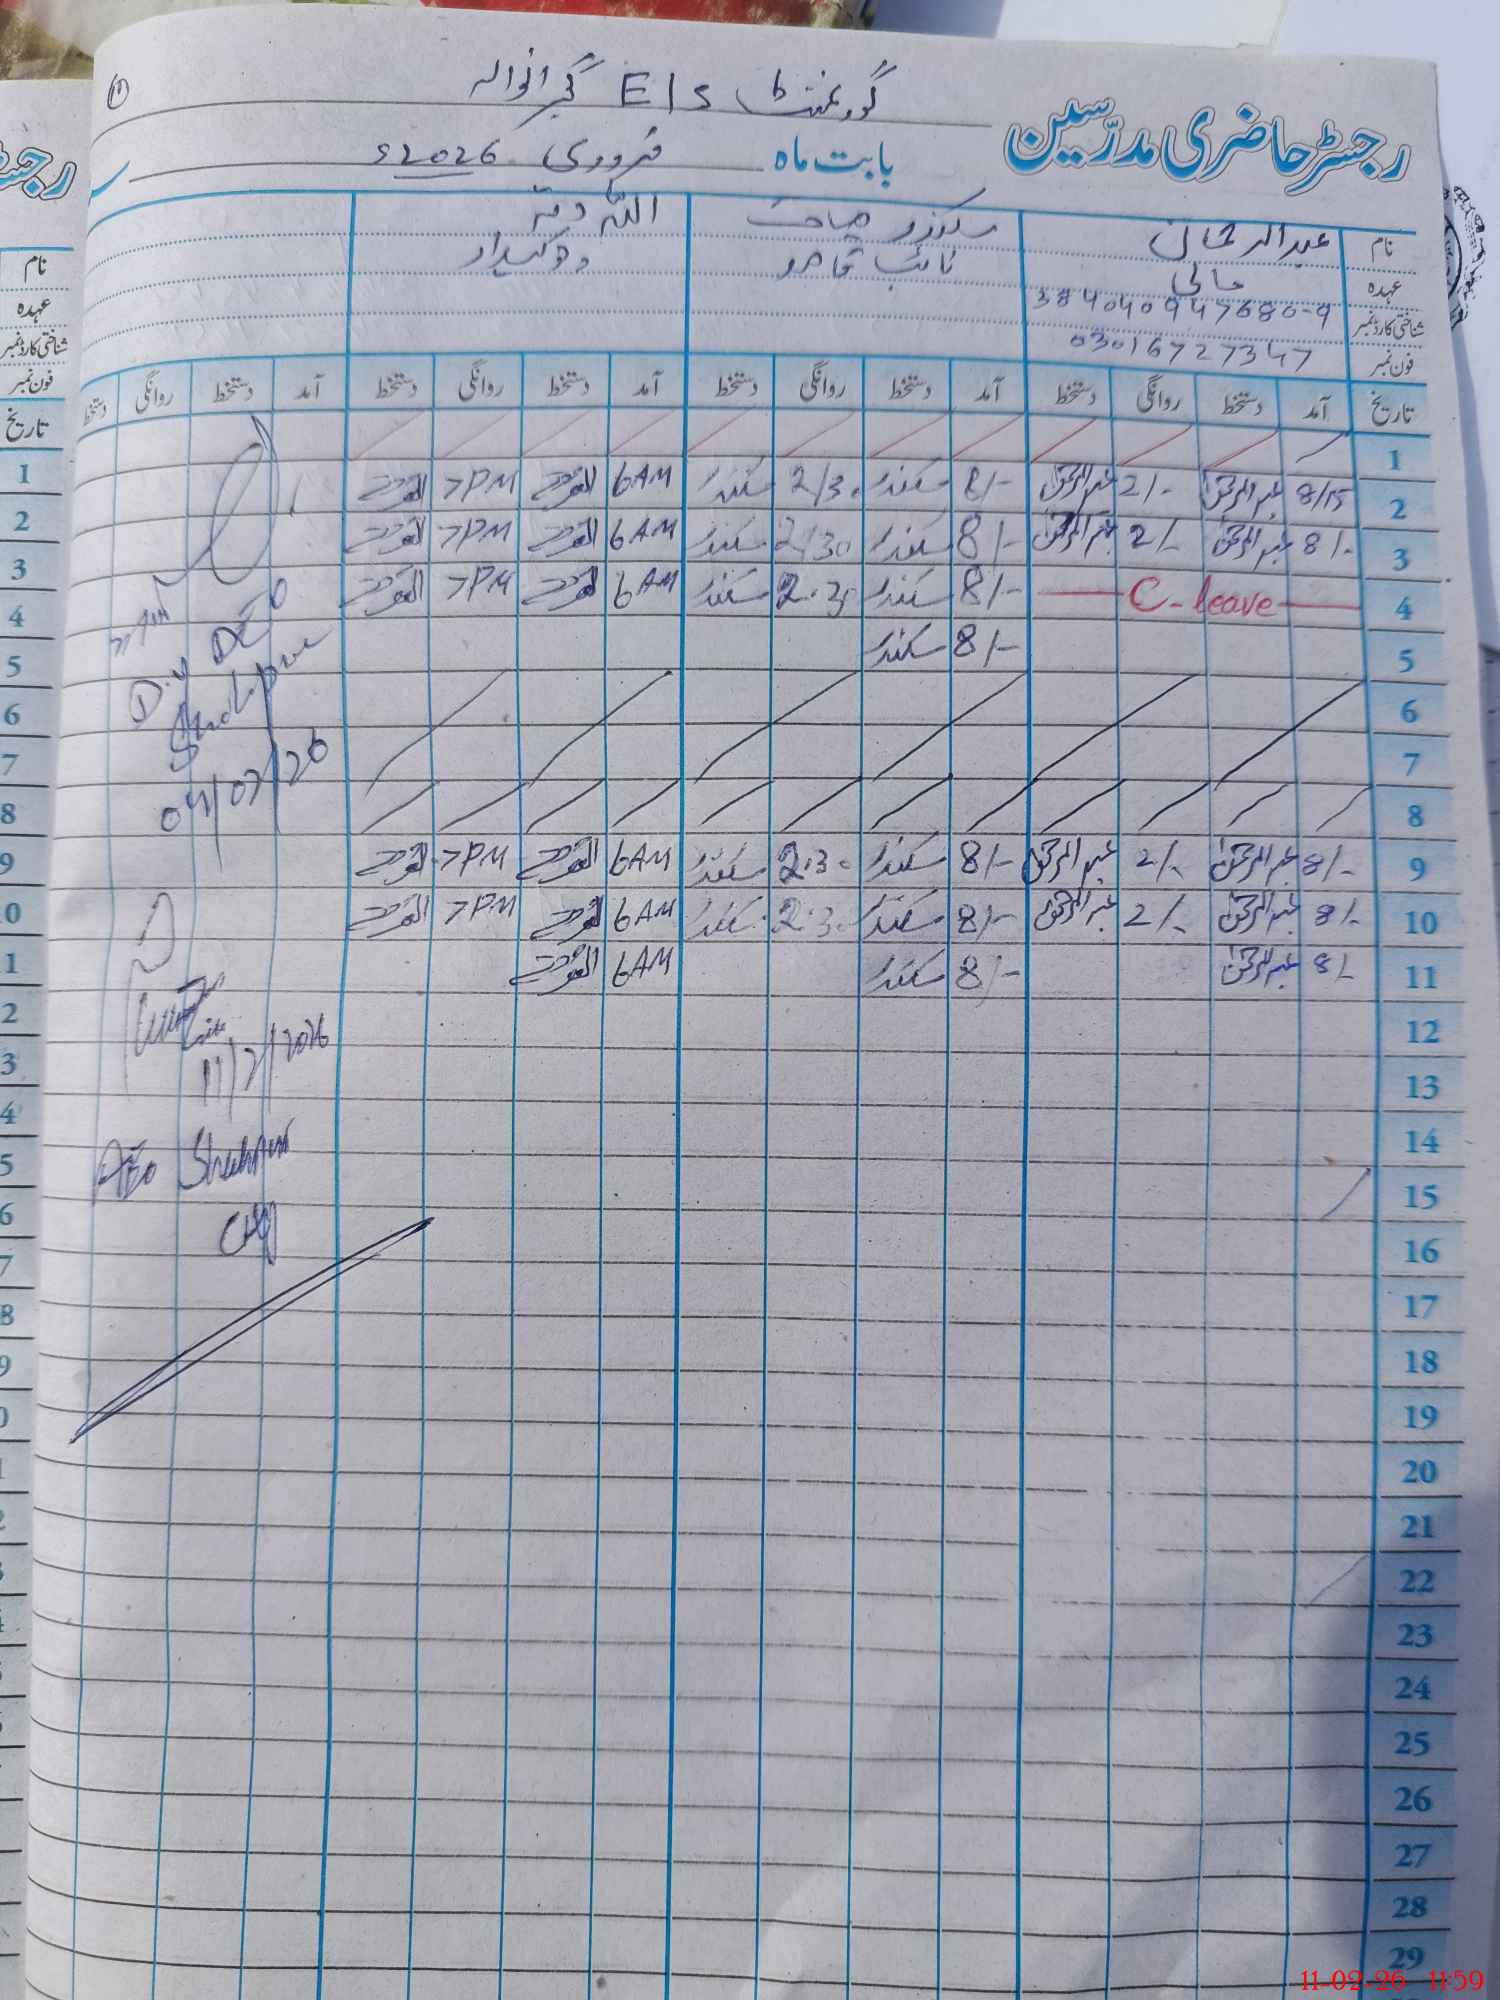 گورنمنٹ E/S گجرانوالہ
رجسٹر حاضری مدرسین
بابت ماہ فروری 2026ء
نام عبدالرحمان سکندر حیات اللہ دتہ
عہدہ مالی نائب قاصد چوکیدار
شناختی کارڈ نمبر 384040947680-9
فون نمبر 03016727347
تاریخ آمد دستخط روانگی دستخط آمد دستخط روانگی دستخط آمد دستخط روانگی دستخط آمد دستخط روانگی دستخط
1
2 8/15 عبدالرحمن 2/- عبدالرحمن 8/- سکندر 2/30 سکندر 6AM اللہ دتہ 7PM اللہ دتہ
3 8/- عبدالرحمن 2/- عبدالرحمن 8/- سکندر 2/30 سکندر 6AM اللہ دتہ 7PM اللہ دتہ
4 C-leave 8/- سکندر 2.30 سکندر 6AM اللہ دتہ 7PM اللہ دتہ
5 8/- سکندر
6
7
8
9 8/- عبدالرحمن 2/- عبدالرحمن 8/- سکندر 2.30 سکندر 6AM اللہ دتہ 7PM اللہ دتہ
10 8/- عبدالرحمن 2/- عبدالرحمن 8/- سکندر 2.30 سکندر 6AM اللہ دتہ 7PM اللہ دتہ
11 8/- عبدالرحمن 8/- سکندر 6AM اللہ دتہ
12
13
14
15
16
17
18
19
20
21
22
23
24
25
26
27
28
29
Dy DEO
Shahpur
04/02/26
11/2/2026
AEO Shahpur
رجسٹر
نام
عہدہ
شناختی کارڈ نمبر
فون نمبر
تاریخ
1
2
3
4
5
6
7
8
9
11-02-26 11:59